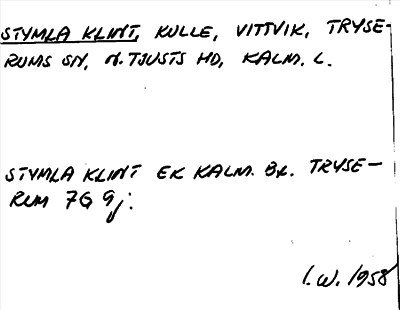 STYMLA KLINT, KULLE, VITTVIK, TRYSE-
RUMS SN, N. TJUSTS HD, KALM. L.
STYMLA KLINT EK KALM. Bl. TRYSE-
RUM 7G 9j.
I.W. 1958